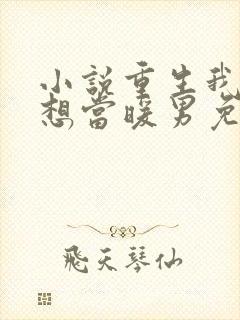 小說重生我
想當暖男免
飛天琴仙